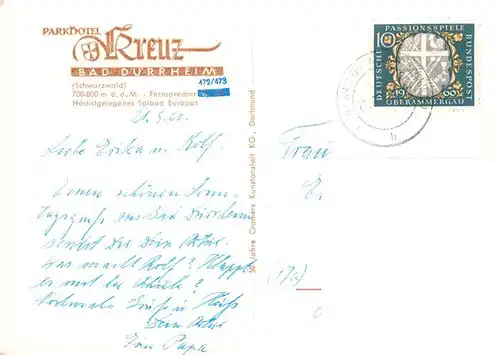 PARKHOTEL
Kreuz
BAD DÜRRHEIM
(Schwarzwald) 472/473
700-800 m ü. d. M. - Fernsprecher
Höchstgelegenes Solbad Europas
21.5.60.
Liebe Erika u. Rolf!
Einen schönen Sonn-
tagsgruß aus Bad Dürrheim
sendet Dir Dein
Was macht Rolf? Klappt
es mit der Schule?
Nochmals Grüße u. Küsse
Dein
Euer Papa.
50 Jahre Cramers Kunstanstalt KG, Dortmund
PASSIONSSPIELE
10
DEUTSCHE
BUNDESPOST
19 60
OBERAMMERGAU
b
Frau
E.
(17a)